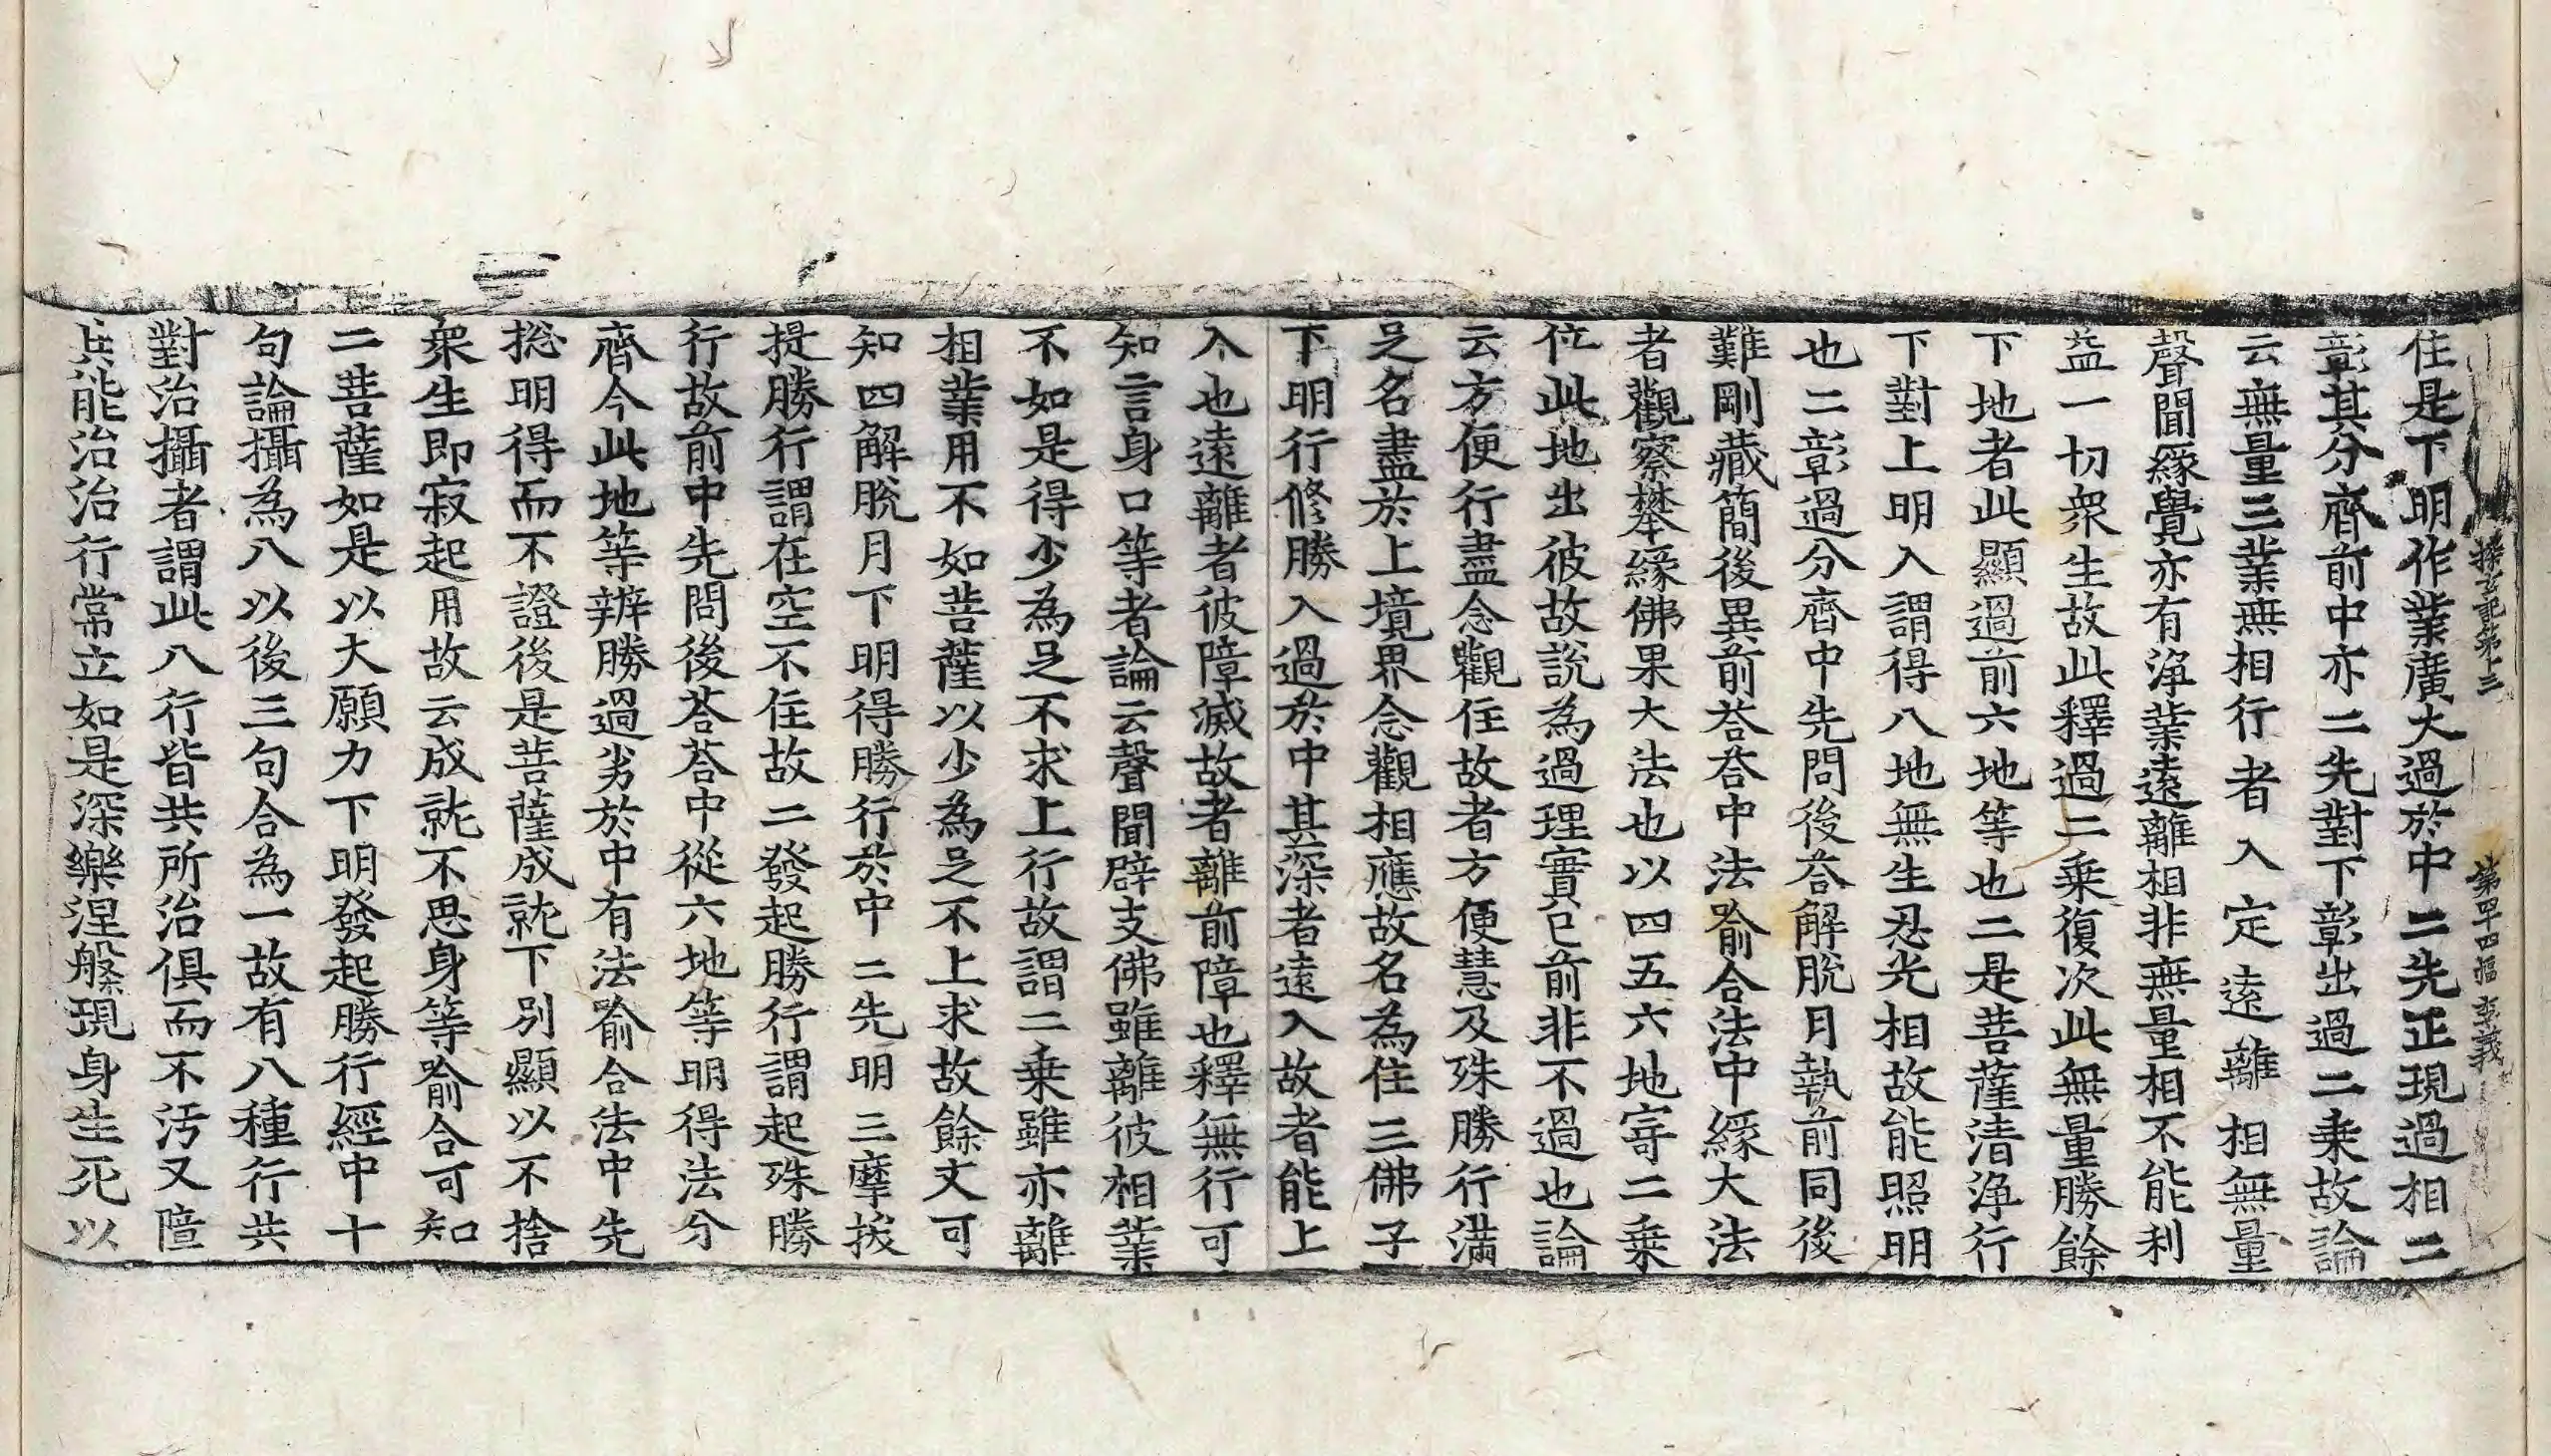 探玄記第十三　第四十四幅　孝義
住是下明作業廣大過於中二先正現過相二
彰其分齊前中亦二先對下彰出過二乗故論
云無量三業無相行者入定遠離相無量
聲聞緣覺亦有淨業遠離相非無量相不能利
益一切衆生故此釋過二乗復次此無量勝餘
下地者此顯過前六地等也二是菩薩清淨行
下對上明入謂得八地無生忍光相故能照明
也二彰過分齊中先問後荅解脫月執前同後
難剛藏簡後異前荅荅中法喻合法中緣大法
者觀察攀緣佛果大法也以四五六地寄二乗
位此地出彼故說為過理實已前非不過也論
云方便行盡念觀住故者方便慧及殊勝行滿
足名盡於上境界念觀相應故名為住三佛子
下明行修勝入過於中甚深者遠入故者能上
入也遠離者彼障滅故者離前障也釋無行可
知言身口等者論云聲聞辟支佛雖離彼相業
不如是得少為足不求上行故謂二乗雖亦離
相業用不如菩薩以少為足不上求故餘文可
知四解脫月下明得勝行於中二先明三摩拔
提勝行謂在空不住故二發起勝行謂起殊勝
行故前中先問後荅荅中從六地等明得法分
齊今此地等辨勝過劣於中有法喻合法中先
捴明得而不證後是菩薩成就下別顯以不捨
衆生即寂起用故云成就不思身等喻合可知
二菩薩如是以大願力下明發起勝行經中十
句論攝為八以後三句合為一故有八種行共
對治攝者謂此八行皆共所治俱而不汚又障
共能治治行常立如是深樂涅槃現身生死以